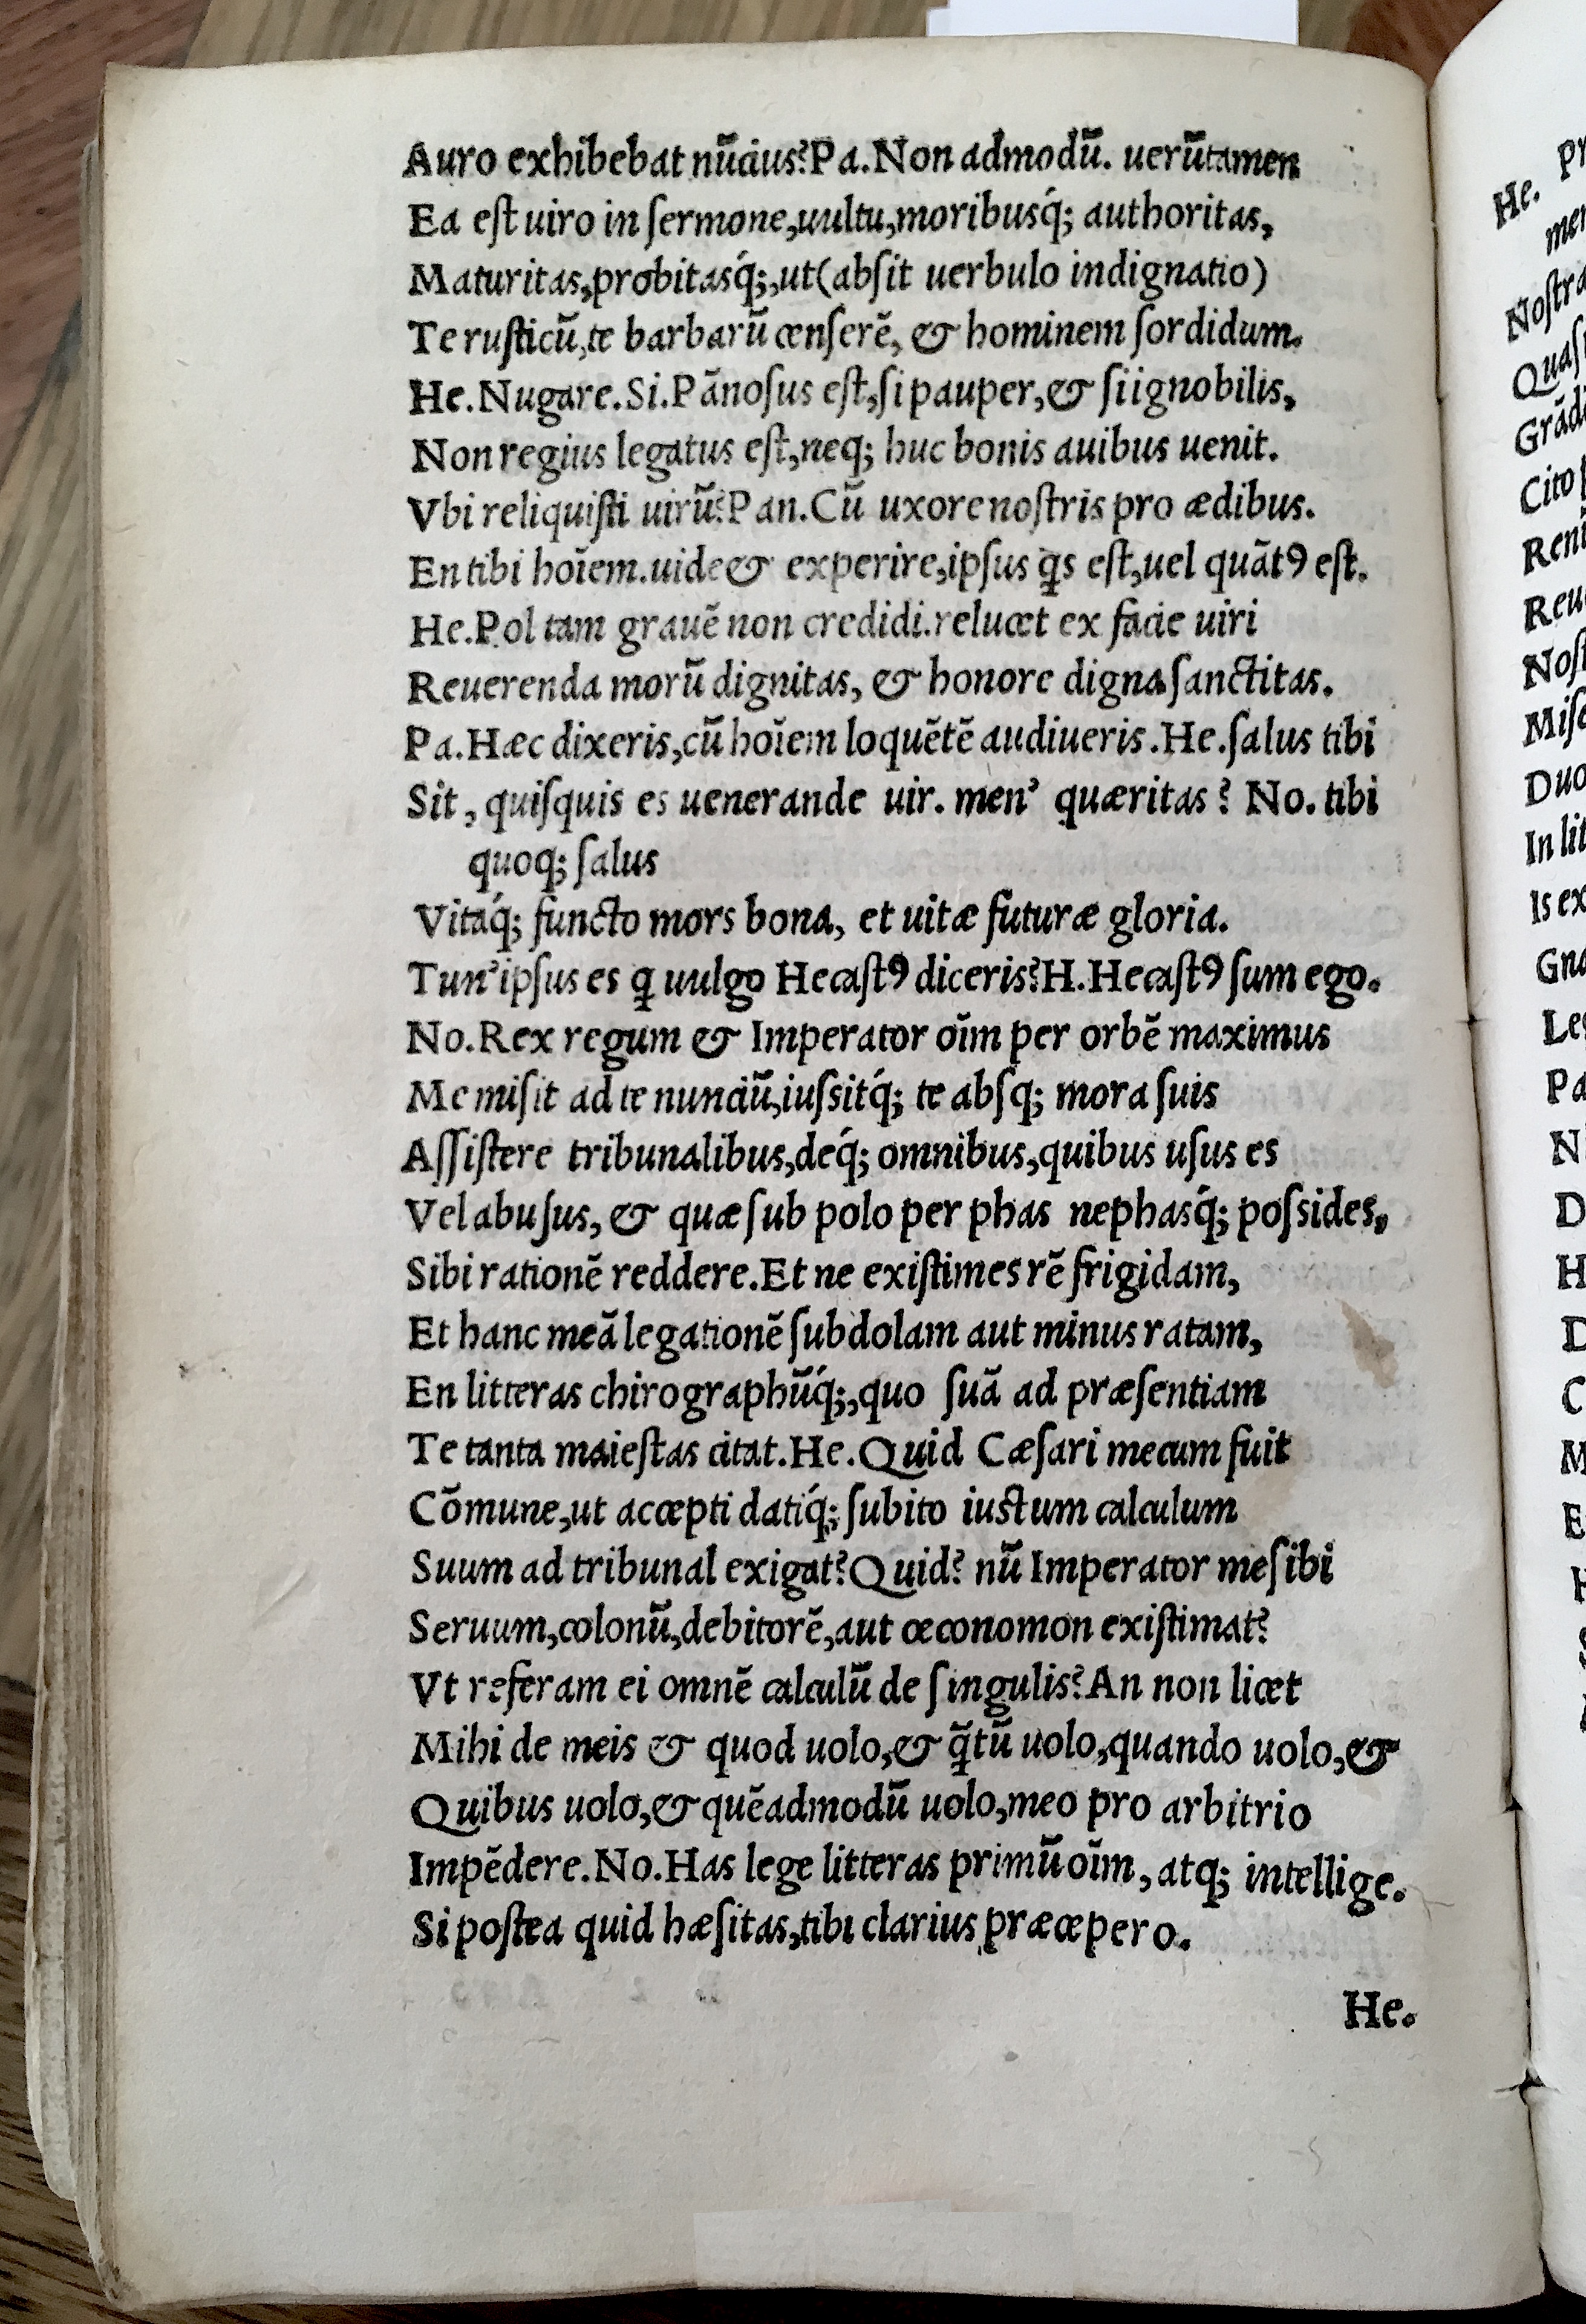 Auro exhibebat nũcius? Pa. Non admodũ. uerũtamen
Ea eſt uiro in ſermone, uultu, moribusq́; authoritas,
Maturitas, probitasq́;, ut (abſit uerbulo indignatio)
Te ruſticũ, te barbarũ cenſerẽ, & hominem ſordidum.
He. Nugare. Si. Pãnoſus eſt, ſi pauper, & ſi ignobilis,
Non regius legatus eſt, neq; huc bonis auibus uenit.
Vbi reliquiſti uirũ? Pan. Cũ uxore noſtris pro ædibus.
En tibi hoĩem. uide & experire, ipſus q̃s eſt, uel quãtꝰ eſt.
He. Pol tam grauẽ non credidi. relucet ex facie uiri
Reuerenda morũ dignitas, & honore digna ſanctitas.
Pa. Hæc dixeris, cũ hoĩem loquẽtẽ audiueris. He. ſalus tibi
Sit, quiſquis es uenerande uir. men’ quæritas? No. tibi
quoq; ſalus
Vitáq; functo mors bona, et uitæ futuræ gloria.
Tun’ ipſus es q uulgo Hecaſtꝰ diceris? H. Hecaſtꝰ ſum ego.
No. Rex regum & Imperator oĩm per orbẽ maximus
Me miſit ad te nunciũ, iuſsitq́; te abſq; mora ſuis
Aſſiſtere tribunalibus, deq́; omnibus, quibus uſus es
Vel abuſus, & quæ ſub polo per phas nephasq́; poſsides,
Sibi rationẽ reddere. Et ne exiſtimes rẽ frigidam,
Et hanc meã legationẽ ſubdolam aut minus ratam,
En litteras chirographũq́;, quo ſuã ad præſentiam
Te tanta maieſtas citat. He. Quid Cæſari mecum fuit
Cõmune, ut accepti datiq́; ſubito iuſtum calculum
Suum ad tribunal exigat? Quid? nũ Imperator me ſibi
Seruum, colonũ, debitorẽ, aut œconomon exiſtimat?
Vt referam ei omnẽ calculũ de ſingulis? An non licet
Mihi de meis & quod uolo, & q̃tũ uolo, quando uolo, &
Quibus uolo, & quẽadmodũ uolo, meo pro arbitrio
Impẽdere. No. Has lege litteras primũ oĩm, atq; intellige.
Si poſtea quid hæſitas, tibi clarius præcepero.
He.
He. Pr
mer
Noſtra
Quaſ
Grãdi
Cito p
Reni
Reu
Noſ
Miſe
Duo
In lit
Is ex
Gna
Leg
Pa
N
D
H
D
C
M
E
H